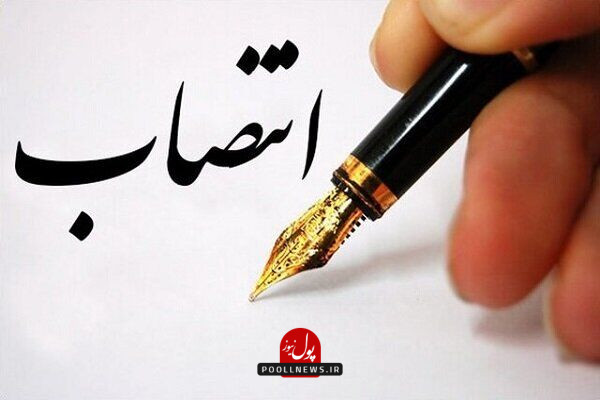 انتصاب
پول نیوز
POOLLNEWS.IR